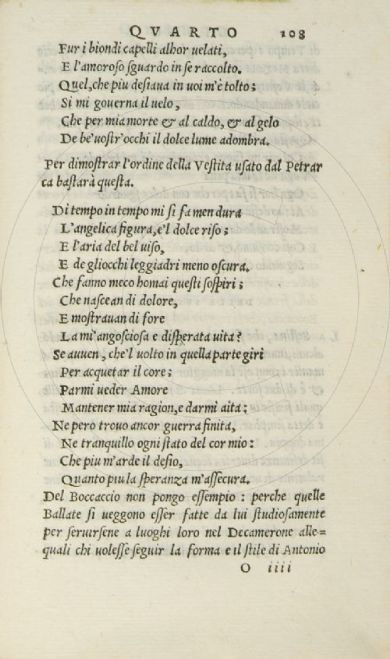 QVARTO 108
Fur i biondi capelli alhor uelati,
E l'amoroso sguardo in se raccolto.
Quel, che piu desiaua in uoi m'è tolto;
Si mi gouerna il uelo,
Che per mia morte & al caldo, & al gelo
De be' uostr'occhi il dolce lume adombra.
Per dimostrar l'ordine della Vestita usato dal Petrar
ca bastarà questa.
Di tempo in tempo mi si fa men dura
L'angelica figura, e'l dolce riso;
E l'aria del bel uiso,
E de gliocchi leggiadri meno oscura.
Che fanno meco homai questi sospiri;
Che nascean di dolore,
E mostrauan di fore
La mi' angosciosa e disperata uita?
Se auuen, che'l uolto in quella parte giri
Per acquetar il core;
Parmi ueder Amore
Mantener mia ragion, e darmi aita:
Ne pero trouo ancor guerra finita,
Ne tranquillo ogni stato del cor mio:
Che piu m'arde il desio,
Quanto piu la speranza m'assecura.
Del Boccaccio non pongo essempio: perche quelle
Ballate si ueggono esser fatte da lui studiosamente
per seruirsene a luoghi loro nel Decamerone alle=
quali chi uolesse seguir la forma e il stile di Antonio
O iiii